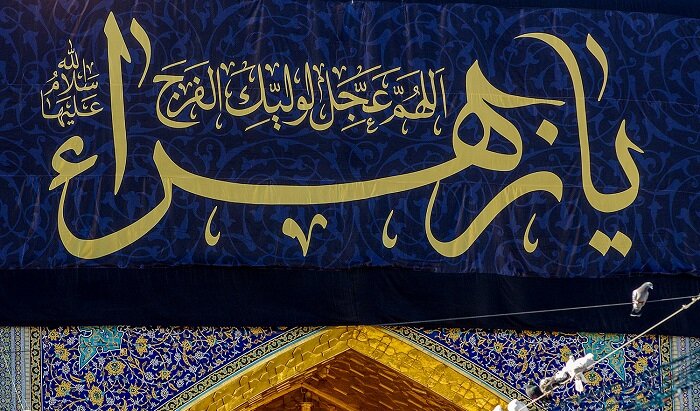 یا زهراء
اللهم عجل لولیك الفرج
سلام الله علیها